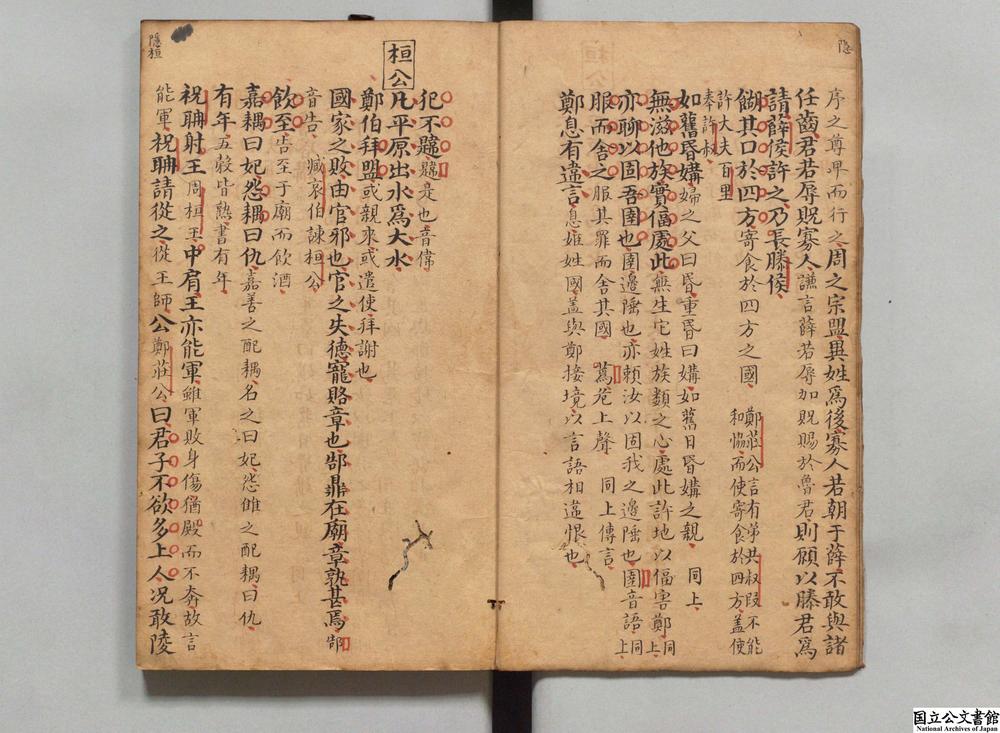 隱
序之尊卑而行之周之宗盟異姓爲後寡人若朝于薛不敢與諸
任齒君若辱貺寡人謙言薛若辱加貺賜於魯君則願以滕君爲
請薛侯許之乃長滕侯
餬其口於四方寄食於四方之國 鄭莊公言有弟共叔段不能和協而使寄食於四方盖使
許大夫百里奉許叔
如舊昏媾婦之父曰昏重昏曰媾如舊日昏媾之親 同上
無滋他族實偪處此無生它姓族類之心處此許地以偪害鄭 同上
亦聊以固吾圉也圉邊陲也亦頼汝以固我之邊陲也圉音語 同上
服而舍之服其罪而舍其國 萬卷上聲 同上傳言
鄭息有違言息姬姓國盖與鄭接境以言語相違恨也
隱桓
犯不韙韙是也音偉
桓公
凡平原出水爲大水
鄭伯拜盟或親來或遣使拜謝也
國家之敗由官邪也官之失德寵賂章也郜鼎在廟章孰甚焉 郜
音告 臧哀伯諫桓公
飲至告至于廟而飲酒
嘉耦曰妃怨耦曰仇嘉善之配耦名之曰妃怨雠之配耦曰仇
有年五穀皆熟書有年
祝聃射王周桓王中肩王亦能軍雖軍敗身傷猶殿而不奔故言
能軍祝聃請從之從王師公鄭莊公曰君子不欲多上人况敢陵
国立公文書館
National Archives of Japan